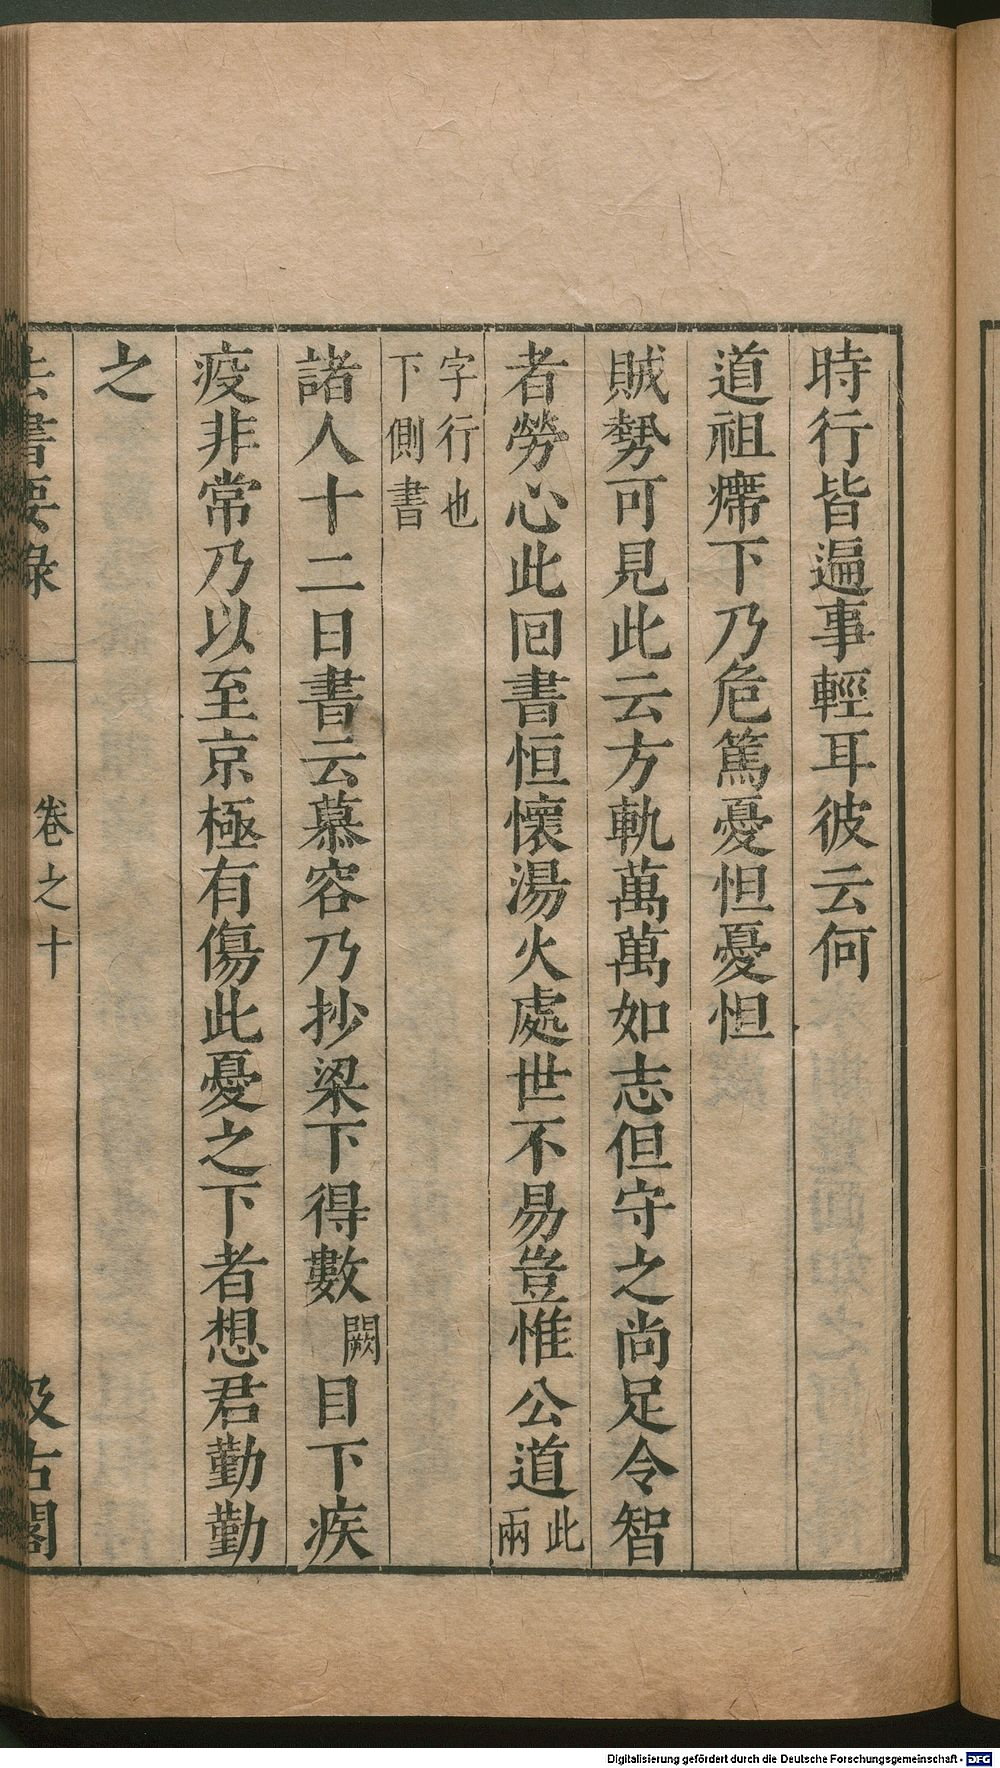 時行皆遍事輕耳彼云何
道祖㿃下乃危篤憂怛憂怛
賊勢可見此云方軌萬萬如志但守之尚足令智
者勞心此回書恒懷湯火處世不易豈惟公道此兩
字行也
下側書
諸人十二日書云慕容乃抄梁下得數闕目下疾
疫非常乃以至京極有傷此憂之下者想君勤勤
之
法書要錄 卷之十 汲古閣
Digitalisierung gefördert durch die Deutsche Forschungsgemeinschaft - DFG